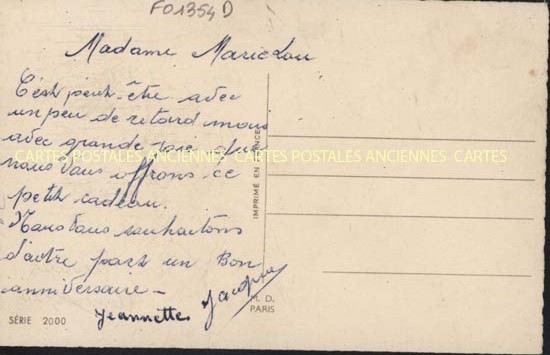 F01354D
Madame MarieLou
C'est peut-être avec
un peu de retard mais
avec grande joie que
nous vous offrons ce
petit cadeau.
Nous vous souhaitons
d'autre part un Bon
anniversaire -
Jeannette Jacques
CARTES POSTALES ANCIENNES CARTES POSTALES ANCIENNES CARTES
IMPRIMÉ EN FRANCE
M. D.
PARIS
SÉRIE 2000